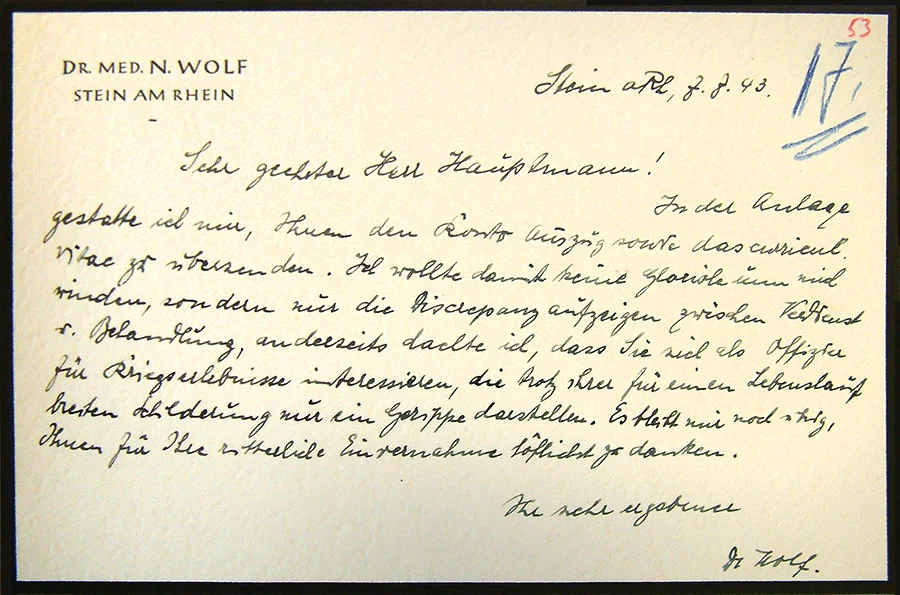 53
17.
DR. MED. N. WOLF
STEIN AM RHEIN
Stein a Rh, 7. 8. 43.
Sehr geehrter Herr Hauptmann!
In der Anlage
gestatte ich mir, Ihnen den Konto Auszug sowie das curicul.
vitae zu übersenden. Ich wollte damit keine Gloriole um mich
winden, sondern nur die Discrepanz aufzeigen zwischen Verdienst
u. Behandlung, anderseits dachte ich, dass Sie sich als Offizier
für Kriegserlebnisse interessieren, die trotz ihrer für einen Lebenslauf
breiten Schilderung nur ein Gerippe darstellen. Es bleibt mir noch übrig,
Ihnen für Ihre ritterliche Einvernahme höflichst zu danken.
Ihr sehr ergebener
Dr Wolf.